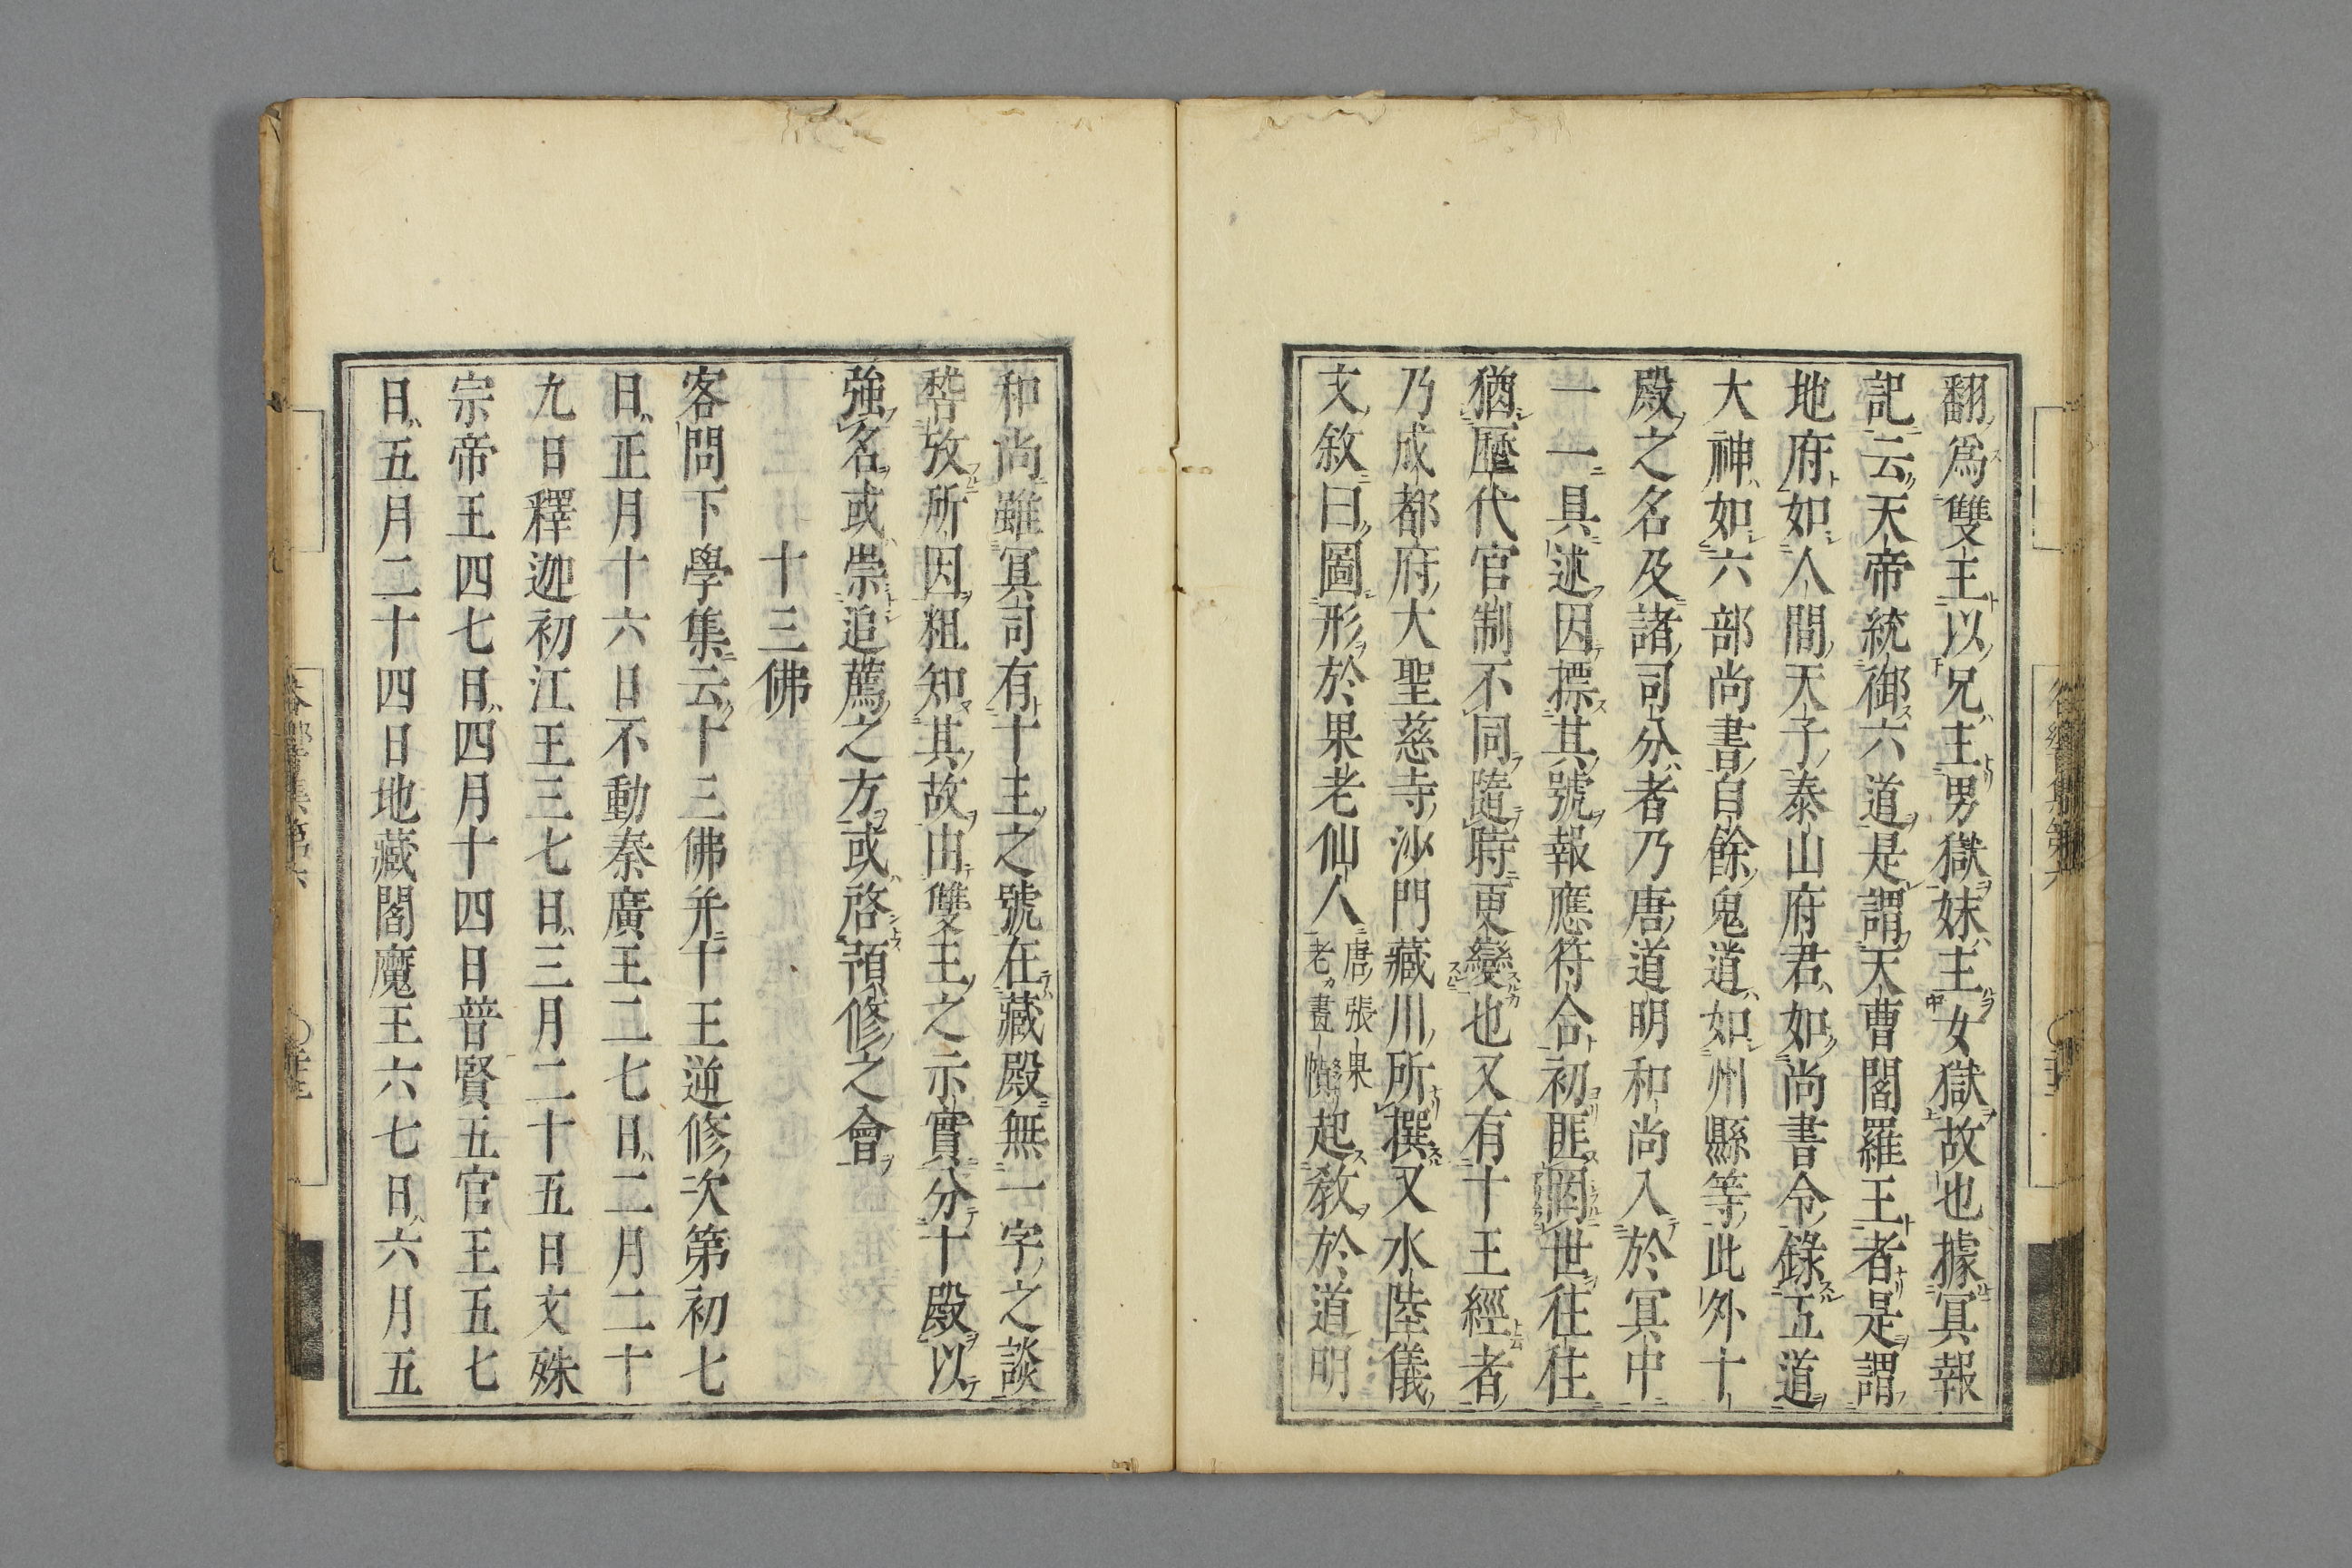 翻爲雙王以兄主男獄妹主女獄故也據冥報
記云天帝統御六道是謂天曹閻羅王者是謂
地府如人間天子泰山府君如尚書令錄五道
大神如六部尚書自餘鬼道如州縣等此外十
殿之名及諸司分者乃唐道明和尚入於冥中
一一具述因摽其號報應符合初匪罔世往往
猶歷代官制不同隨時更變也又有十王經者
乃成都府大聖慈寺沙門藏川所撰又水陸儀
文敘曰圖形於果老仙人
唐張果
老畫幀
起敎於道明
和尚雖冥司有十主之號在藏殿無一字之談
嵆攷所因粗知其故由雙王之示實分十殿以
強名或崇追薦之方或啓預修之會
十三佛
客問下學集云十三佛并十王逆修次第初七
日正月十六日不動秦廣王二七日二月二十
九日釋迦初江王三七日三月二十五日文殊
宗帝王四七日四月十四日普賢五官王五七
日五月二十四日地藏閻魔王六七日六月五